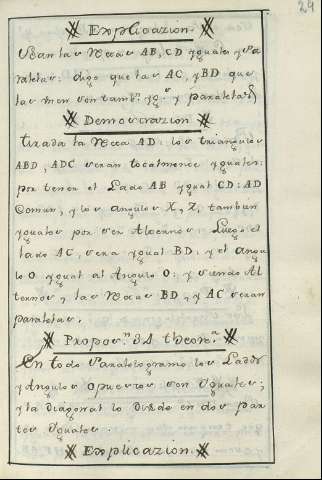 29
Explicazion.
Sean las Rectas AB, CD yguales y Pa
ralelas: digo que las AC, y BD que
las unen son tamb.n yg.s y paralelas
Demostrazion
tirada la Recta AD: los triangulos
ABD, ADC seran totalmente yguales:
por tener el Lado AB ygual CD: AD
Comun, y los angulos X, Z, tambien
yguales por ser Alternos: Luego el
lado AC, sera ygual BD: y el angu
lo O ygual al Angulo O: y siendo Al
ternos, las Rectas BD, y AC seran
paralelas.
Propos.n 34 theore.a
En todo Paralelogramo los Lados
y Angulos opuestos son Yguales;
y la diagonal lo divide en dos par
tes Yguales.
Explicazion.